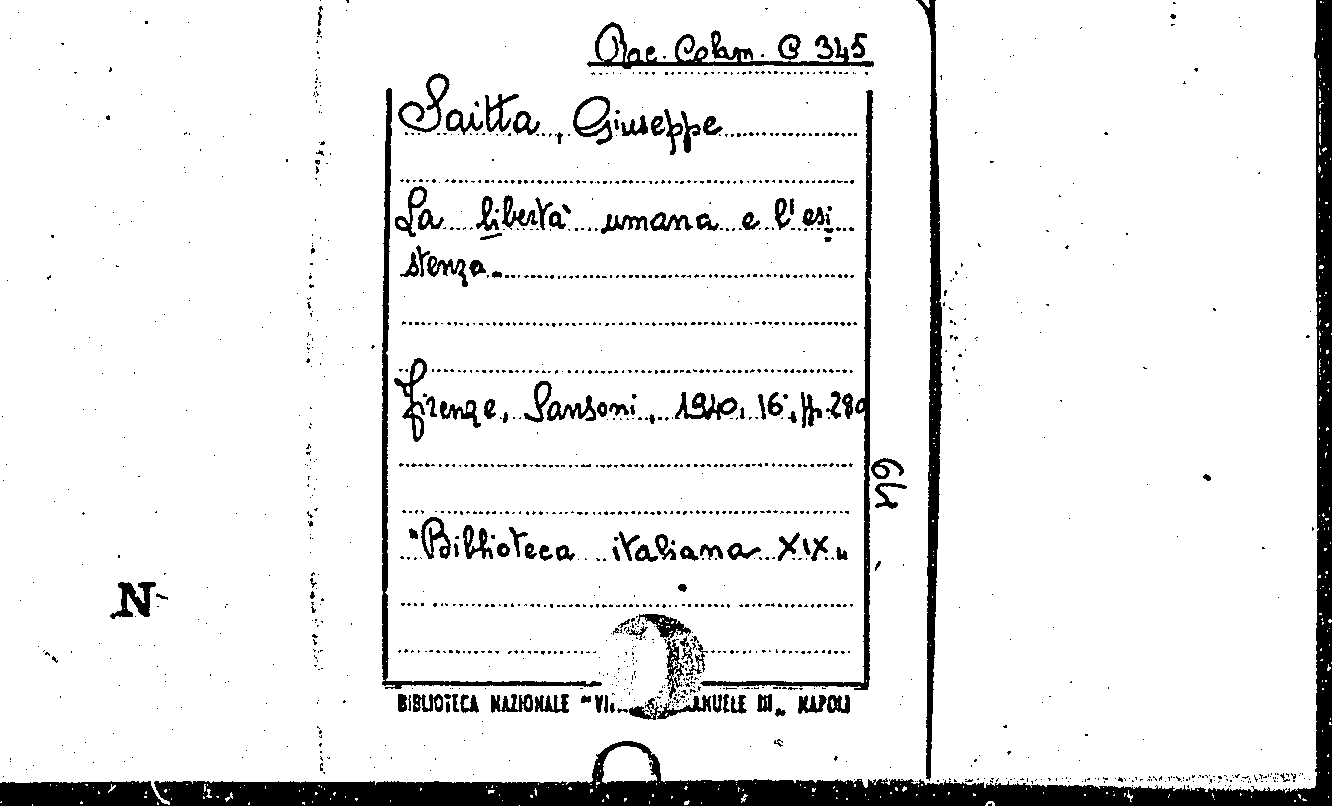 Rac. Colam. C 345
Saitta, Giuseppe
La libertà umana e l'esi
stenza.
Firenze, Sansoni, 1940, 16°, pp. 280
64
"Biblioteca italiana XIX"
N
BIBLIOTECA NAZIONALE "VI ANUELE III" NAPOLI